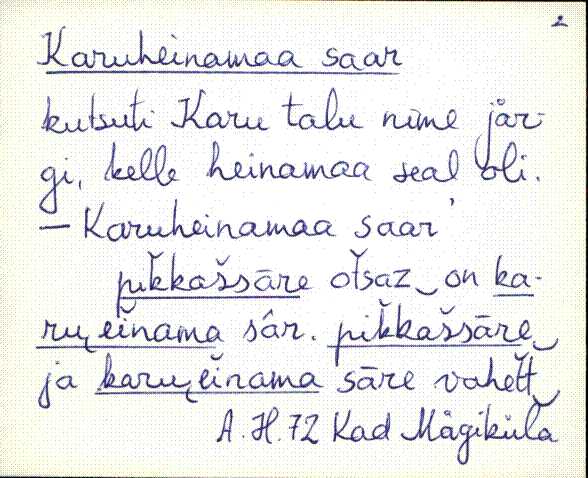 2
Karuheinamaa saar
kutsuti Karu talu nime jär-
gi, kelle heinamaa seal oli.
— Karuheinamaa saar'
pikkašsāre otsaz on ka-
ru einama sâr. pikkašsāre
ja karu einama sāre vahelt
A.H.72 Kad Mägiküla